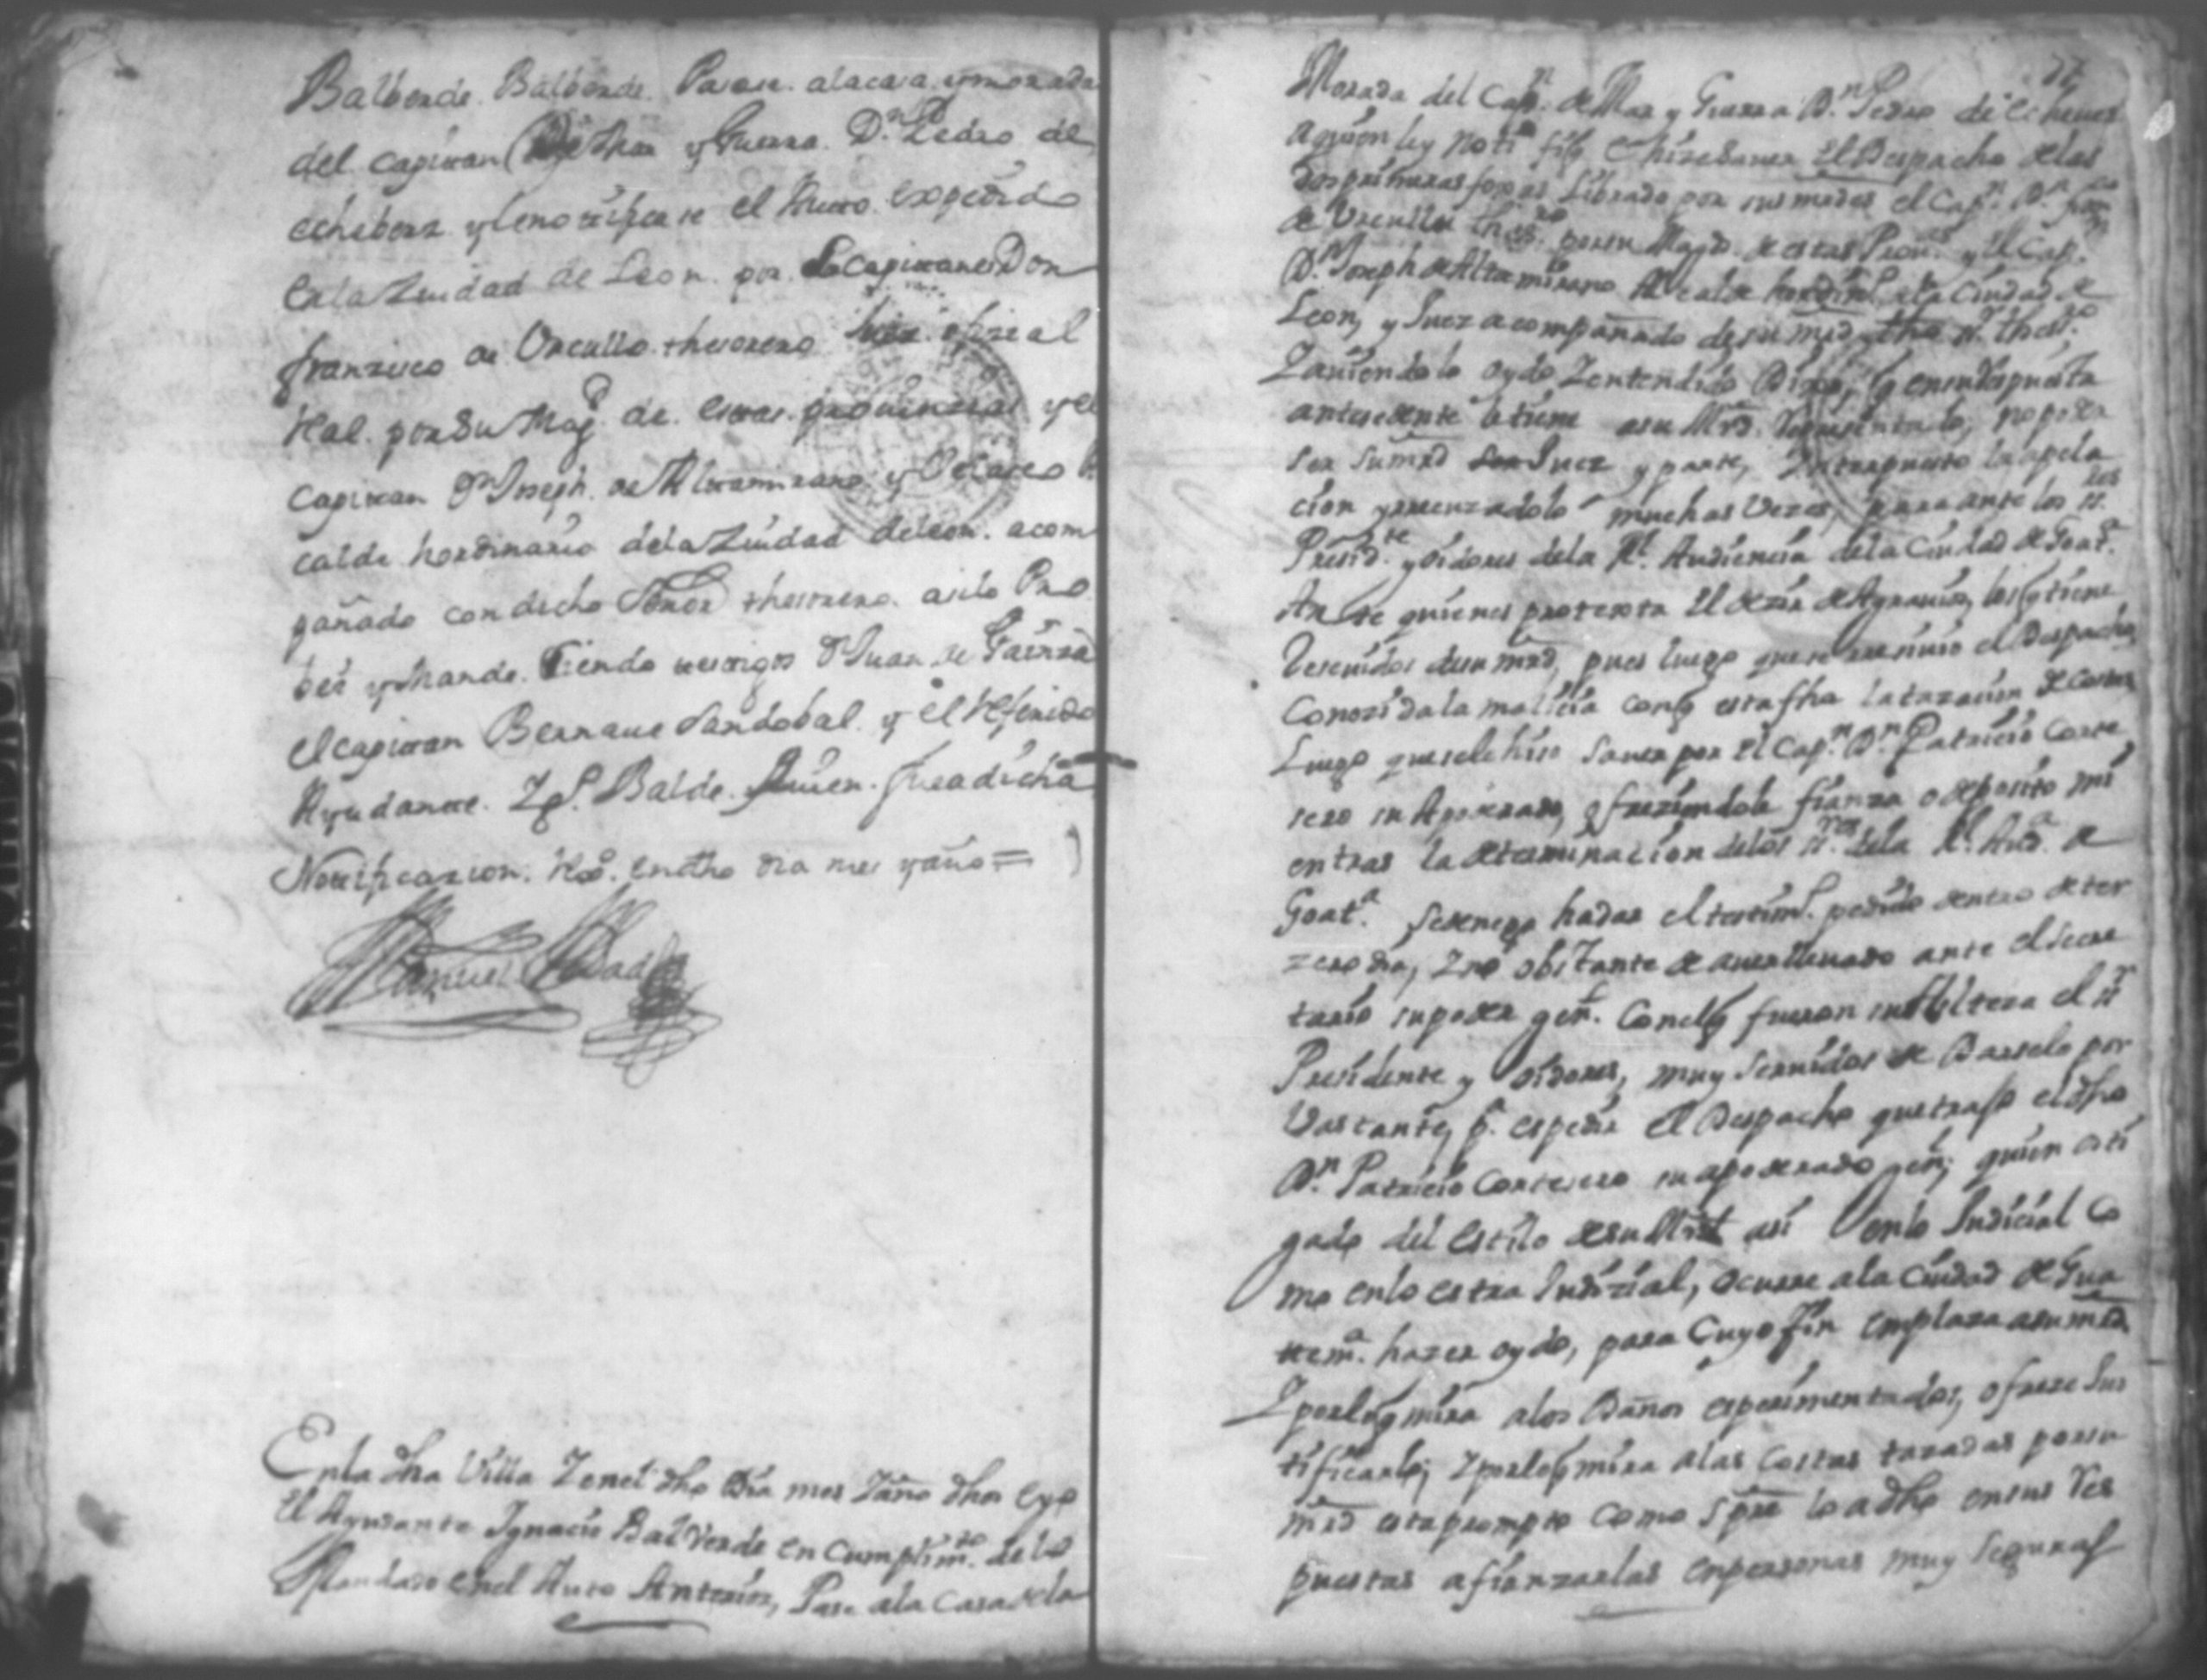 Balberde Balberde Pase. ala casa. y morada
del capitan De Mar y Guerra. Dn. Pedro de
echebers y lenotifique el Auto. expedido
en la Ziudad de Leon. por. los capitanes Don
franzisco de Orcullo thesorero Juez ofizial
Real. por Su Mag.d de. estas. probincias y el
capitan Dn Joseph. de Altamirano y Al
calde hordinario dela Ziudad de Leon. acom
pañado con dicho Señor thesorero. asi lo Pro
bei y Mande. Siendo testigos Dn Juan de
el capitan Bernaue Sandobal. y el referido
Ayudante. Igo. Balde. quien. hara dicha
Notificazion. en dho dia mes y año =
Manuel
En la dha Villa Zen el dho Dia mes Zaño dhos Eyo
El Ayudante Ygnacio Balverde en Cumplim.to de lo
Mandado en el Auto Anterior, Pase ala Casa de la
77
Morada del Cap.n de Mar y Guerra D.n Pedro de Echeuers
aquien ley notifiq e hize sauer El Despacho de las
dos primeras foxas Librado por sus mrdes el Cap.n D.n fran.co
de Vrcullu thes.ro por su Magd. de estas Prou.as y El Cap.n
D.n Joseph de Altamirano Alcalde hordin.o de la Ciudad de
Leon, y Juez acompañado de su mrd y dho s.r thes.ro
Zauiendolo oydo Zentendido Dixo, q en su Respuesta
antesedente tiene a su Mrd. no poder
ser su mrd Juez y parte, Interpuesto la apela
cion muchas Vezes, para ante los s.res
Presid.te y Oidores dela R.l Audiencia dela Ciudad de Goat.a
Ante quienes protexta El dezir de Agrauios, los q tiene
Reseuidos de su mrd, pues luego que se el Despacho
Conozida la malicia con q esta fha la tazacion de Costas
Luego que sele hizo sauer por El Cap.n D.n Patricio Corte
sero su Apoderado, ofreziendole fianza o deposito mi
entras la determinacion delos s.res dela R.l Aud.a de
Goat.a Se denego hadar el testim.o pedido dentro de ter
zero dia, Zno obstante de auer lleuado ante el Secre
tario su poder gen.l Con el q fueron su Alteza el s.r
Presidente y Oidores, muy Seruidos de Darselo por
Vastante, p.a espedir El Despacho que trajo el dho
D.n Patricio Cortesero su apoderado gen.l, quien osti
gado del Estilo de su Mrd asi en lo Judicial Co
mo en lo estra Judizial, ocurre ala Ciudad de Gua
tem.a hazer oydo, para Cuyo fin emplaza a su mrd
Zporloq mira alos Daños esperimentados, ofreze Jus
tificarlos, Zporloq mira alas Costas tazadas por su
mrd esta prompto Como Spre lo a dho en sus Res
puestas afianzarlas en personas muy Seguras